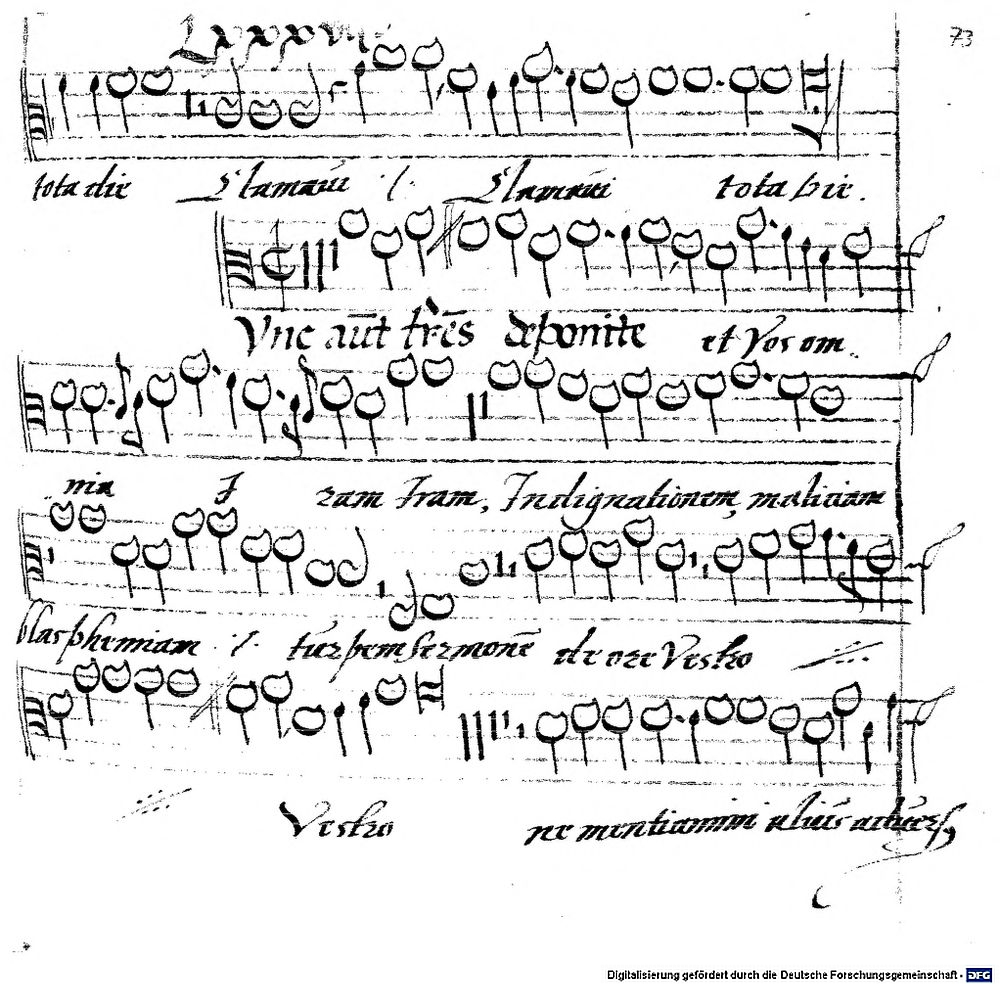 Lxxxvii
73
tota die Clamavi ·/· Clamavi tota die.
Vnc aūt frēs deponite et Vos om
nia I ram Iram, Indignationem, maliciam
blasphemiam ·/· turpem sermonē de ore Vestro
Vestro ne mentiamini alius
Digitalisierung gefördert durch die Deutsche Forschungsgemeinschaft - DFG